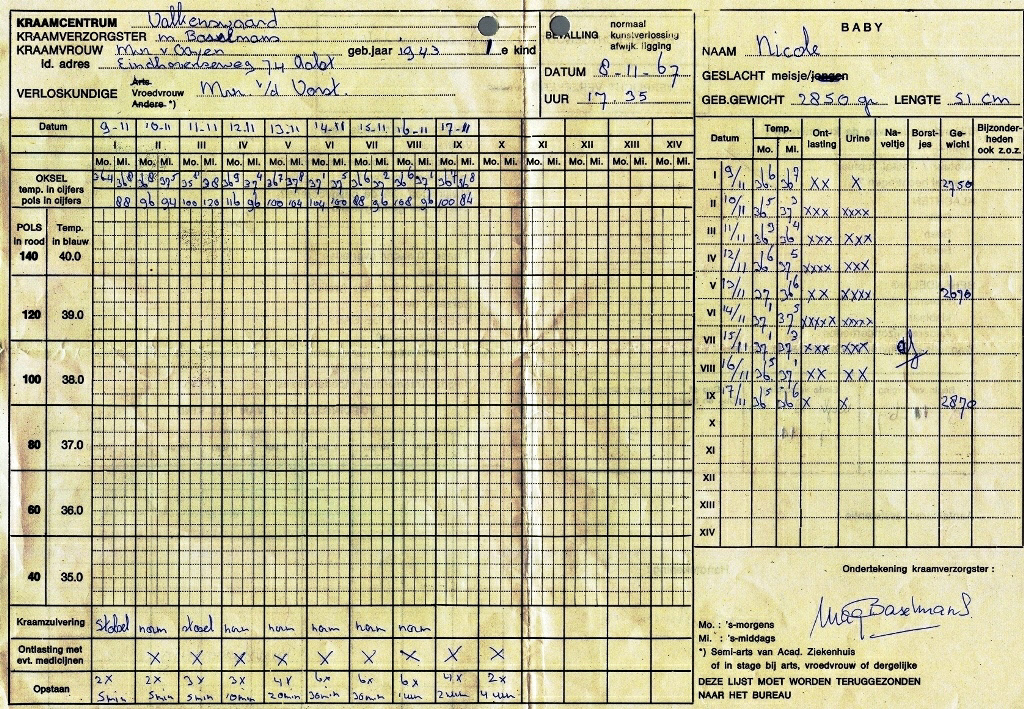 KRAAMCENTRUM Valkenswaard
KRAAMVERZORGSTER m Baselmans
KRAAMVROUW Mevr v geb.jaar 1943 1 e kind
Id. adres Eindhovenseweg 74 Aalst
Arts
VERLOSKUNDIGE Vroedvrouw Mevr v/d Vorst
Andere *)
BEVALLING normaal
kunstverlossing
afwijk. ligging
DATUM 8-11-67
UUR 17 35
BABY
NAAM Nicole
GESLACHT meisje/jongen
GEB.GEWICHT 2850 gr LENGTE 51 cm
Datum 9-11 10-11 11-11 12.11 13.11 14-11 15-11 16-11 17-11
I II III IV V VI VII VIII IX X XI XII XIII XIV
Mo. Mi. Mo. Mi. Mo. Mi. Mo. Mi. Mo. Mi. Mo. Mi. Mo. Mi. Mo. Mi. Mo. Mi. Mo. Mi. Mo. Mi. Mo. Mi. Mo. Mi. Mo. Mi.
OKSEL
temp. in cijfers
pols in cijfers 88 96 94 100 120 116 96 100 104 104 100 88 96 108 96 100 84
POLS Temp.
in rood in blauw
140 40.0
120 39.0
100 38.0
80 37.0
60 36.0
40 35.0
Kraamzuivering norm norm norm norm norm norm
Ontlasting met
evt. medicijnen X X X X X X X X X
Opstaan 2x 2x 3x 3x 4x 6x 6x 6x 4x 2x
5min 5min 5min 10min 20min 30min 30min 1uur 2uur 4uur
Datum Temp. Ont-lasting Urine Na-veltje Borst-jes Ge-wicht Bijzonder-heden ook z.o.z.
Mo. Mi.
I 9/11 36 6 36 7 xx x 2750
II 10/11 36 5 37 3 xxx xxxx
III 11/11 36 9 36 4 xxx xxx
IV 12/11 36 6 37 5 xxxx xxx
V 13/11 37 1 36 6 xx xxxx 2690
VI 14/11 37 1 37 5 xxxxx xxxxx
VII 15/11 37 1 37 3 xxx xxx af
VIII 16/11 36 5 37 1 xx xx
IX 17/11 36 5 36 6 x x 2870
X
XI
XII
XIII
XIV
Ondertekening kraamverzorgster :
Baselmans
Mo. : 's-morgens
Mi. : 's-middags
*) Semi-arts van Acad. Ziekenhuis
of in stage bij arts, vroedvrouw of dergelijke
DEZE LIJST MOET WORDEN TERUGGEZONDEN
NAAR HET BUREAU